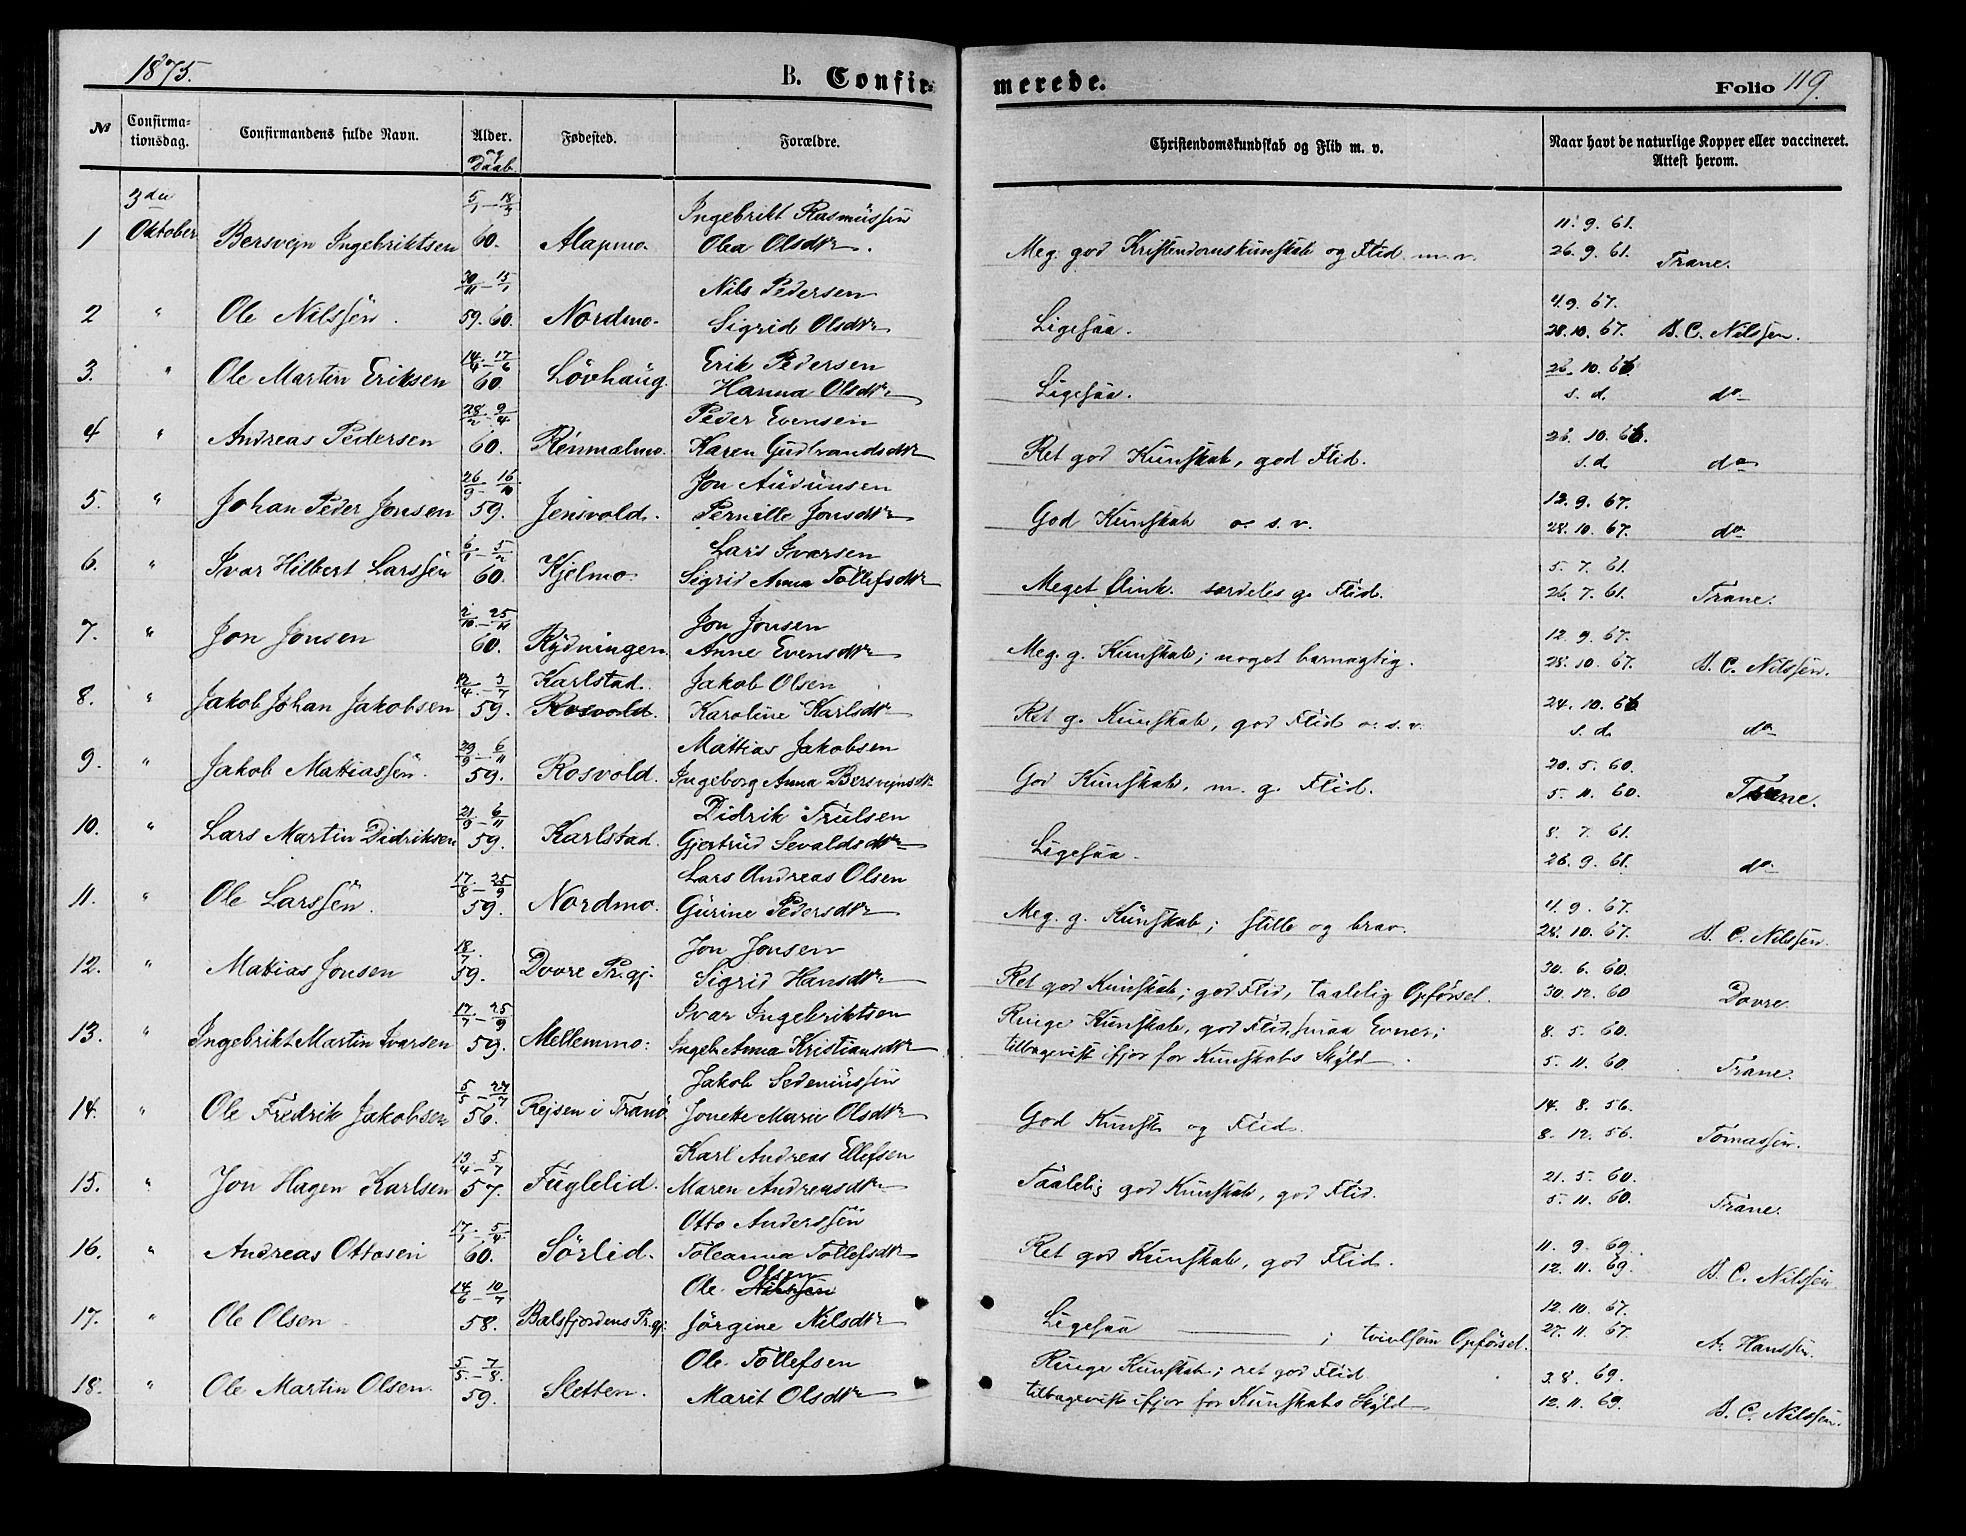 1875. B. Confirmerede. Folio 119.
№ Confirmationsdag. Confirmandens fulde Navn. Alder. og Daab. Fødested. Forældre. Christendomskundskab og Flid m. v. Naar havt de naturlige Kopper eller vaccineret. Attest herom.
3die 5/1 – 18/3 Ingebrikt Rasmussen 11. 9. 61.
1 Oktober Bersvejn Ingebriktsen 60. Alapmo. Olea Olsdtr. Meg. god Kristendomskunskab og Flid m. v. 26. 9. 61. Trane.
30/11 – 15/1 Nils Pedersen 4. 9. 67.
2 " Ole Nilssen. 59. 60. Nordmo. Sigrid Olsdtr Ligesaa. 28. 10. 67. B. C. Nilssen.
14/4 – 17/6 Erik Pedersen 26. 10. 66
3. " Ole Martin Eriksen 60. Lövhaug. Hanna Olsdtr Ligesaa. s. d. do
28/2 – 9/4 Peder Evensen 26. 10. 66.
4 " Andreas Pedersen 60. Rennælmo. Karen Gudbrandsdtr Ret god Kunskab, god Flid. s. d. do
26/9 – 16/10 Jon Audunsen 12. 9. 67.
5. " Johan Peder Jonsen 59. Jensvold. Pernille Jonsdtr God Kunskab o. s. v. 28. 10. 67. do
6/1 – 5/2 Lars Ivarsen 5. 7. 61.
6. " Ivar Hilbert Larssen 60. Kjelmo. Sigrid Anna Tollefsdtr Meget flink. særdeles g. Flid. 26. 7. 61. Trane.
2/10 – 25/11 Jon Jonsen 12. 9. 67.
7. " Jon Jonsen 60. Rydningen. Anne Evensdtr Meg. g. Kunskab; noget barnagtig. 28. 10. 67. B. C. Nilssen.
12/4 – 3/7 Karlstad. Jakob Olsen 24. 10. 66
8. " Jakob Johan Jakobsen 59. Rosvold. Karoline Karlsdtr Ret g. Kunskab, god Flid o. s. v. s. d. do
29/9 – 6/11 Mattias Jakobsen 20. 5. 60.
9. " Jakob Mattiassen. 59. Rosvold. Ingeborg Anna Bersvejnsdtr God Kunskab, m. g. Flid. 5. 11. 60. Trane.
21/9 – 6/11 Didrik Trulsen 8. 7. 61.
10. " Lars Martin Didriksen 59. Karlstad. Gjertrud Sevaldsdtr Ligesaa. 26. 9. 61. do
17/8 – 25/9 Lars Andreas Olsen 4. 9. 67.
11. " Ole Larssen. 59. Nordmo. Gurine Pedersdtr Meg. g. Kunskab; stille og brav. 28. 10. 67. B. C. Nilssen.
18/7. Jon Jonsen 30. 6. 60.
12. " Mattias Jonsen 59. Dovre Pr.gj. Sigrid Hansdtr Ret god Kunskab; god Flid, taalelig Opførsel. 30. 12. 60 Dovre.
17/7 – 25/9 Ivar Ingebriktsen Ringe Kunskab, god Flid, smaa Evner; 8. 5. 60.
13. " Ingebrikt Martin Ivarsen 59. Mellemmo. Ingeb. Anna Kristiansdtr tilbagevist ifjor for Kunskabs Skyld. 5. 11. 60. Trane.
5/5 – 27/7 Jakob Sedeniussen 14. 8. 56.
14. " Ole Fredrik Jakobsen 56. Rejsen i Tranö. Jonette Marie Olsdtr God Kunsk. og Flid. 8. 12. 56. Tomassen.
13/4 – 5/7 Karl Andreas Ellefsen 21. 5. 60.
15. " Jon Hagen Karlsen 57. Fuglelid. Maren Andreasdtr Taalelig god Kunskab, god Flid. 5. 11. 60. Trane.
17/1 – 5/4 Otto Anderssen 11. 9. 69.
16. " Andreas Ottosen 60. Sörlid. Toleanna Tollefsdtr Ret god Kunskab, god Flid. 12. 11. 69. B. C. Nilssen.
14/6 – 10/7 Ole Nilssen Olsen 12. 10. 67.
17. " Ole Olsen 58. Balsfjordens Pr.gj. Jörgine Nilsdtr Ligesaa ; tvivlsom Opførsel. 27. 11. 67. A. Hanssen.
5/5. – 7/8. Ole Tollefsen Ringe Kunskab; ret god Flid 3. 8. 69.
18. " Ole Martin Olsen. 59. Sletten. Marit Olsdtr tilbagevist ifjor for Kunskabs Skyld 12. 11. 69. B. C. Nilssen.